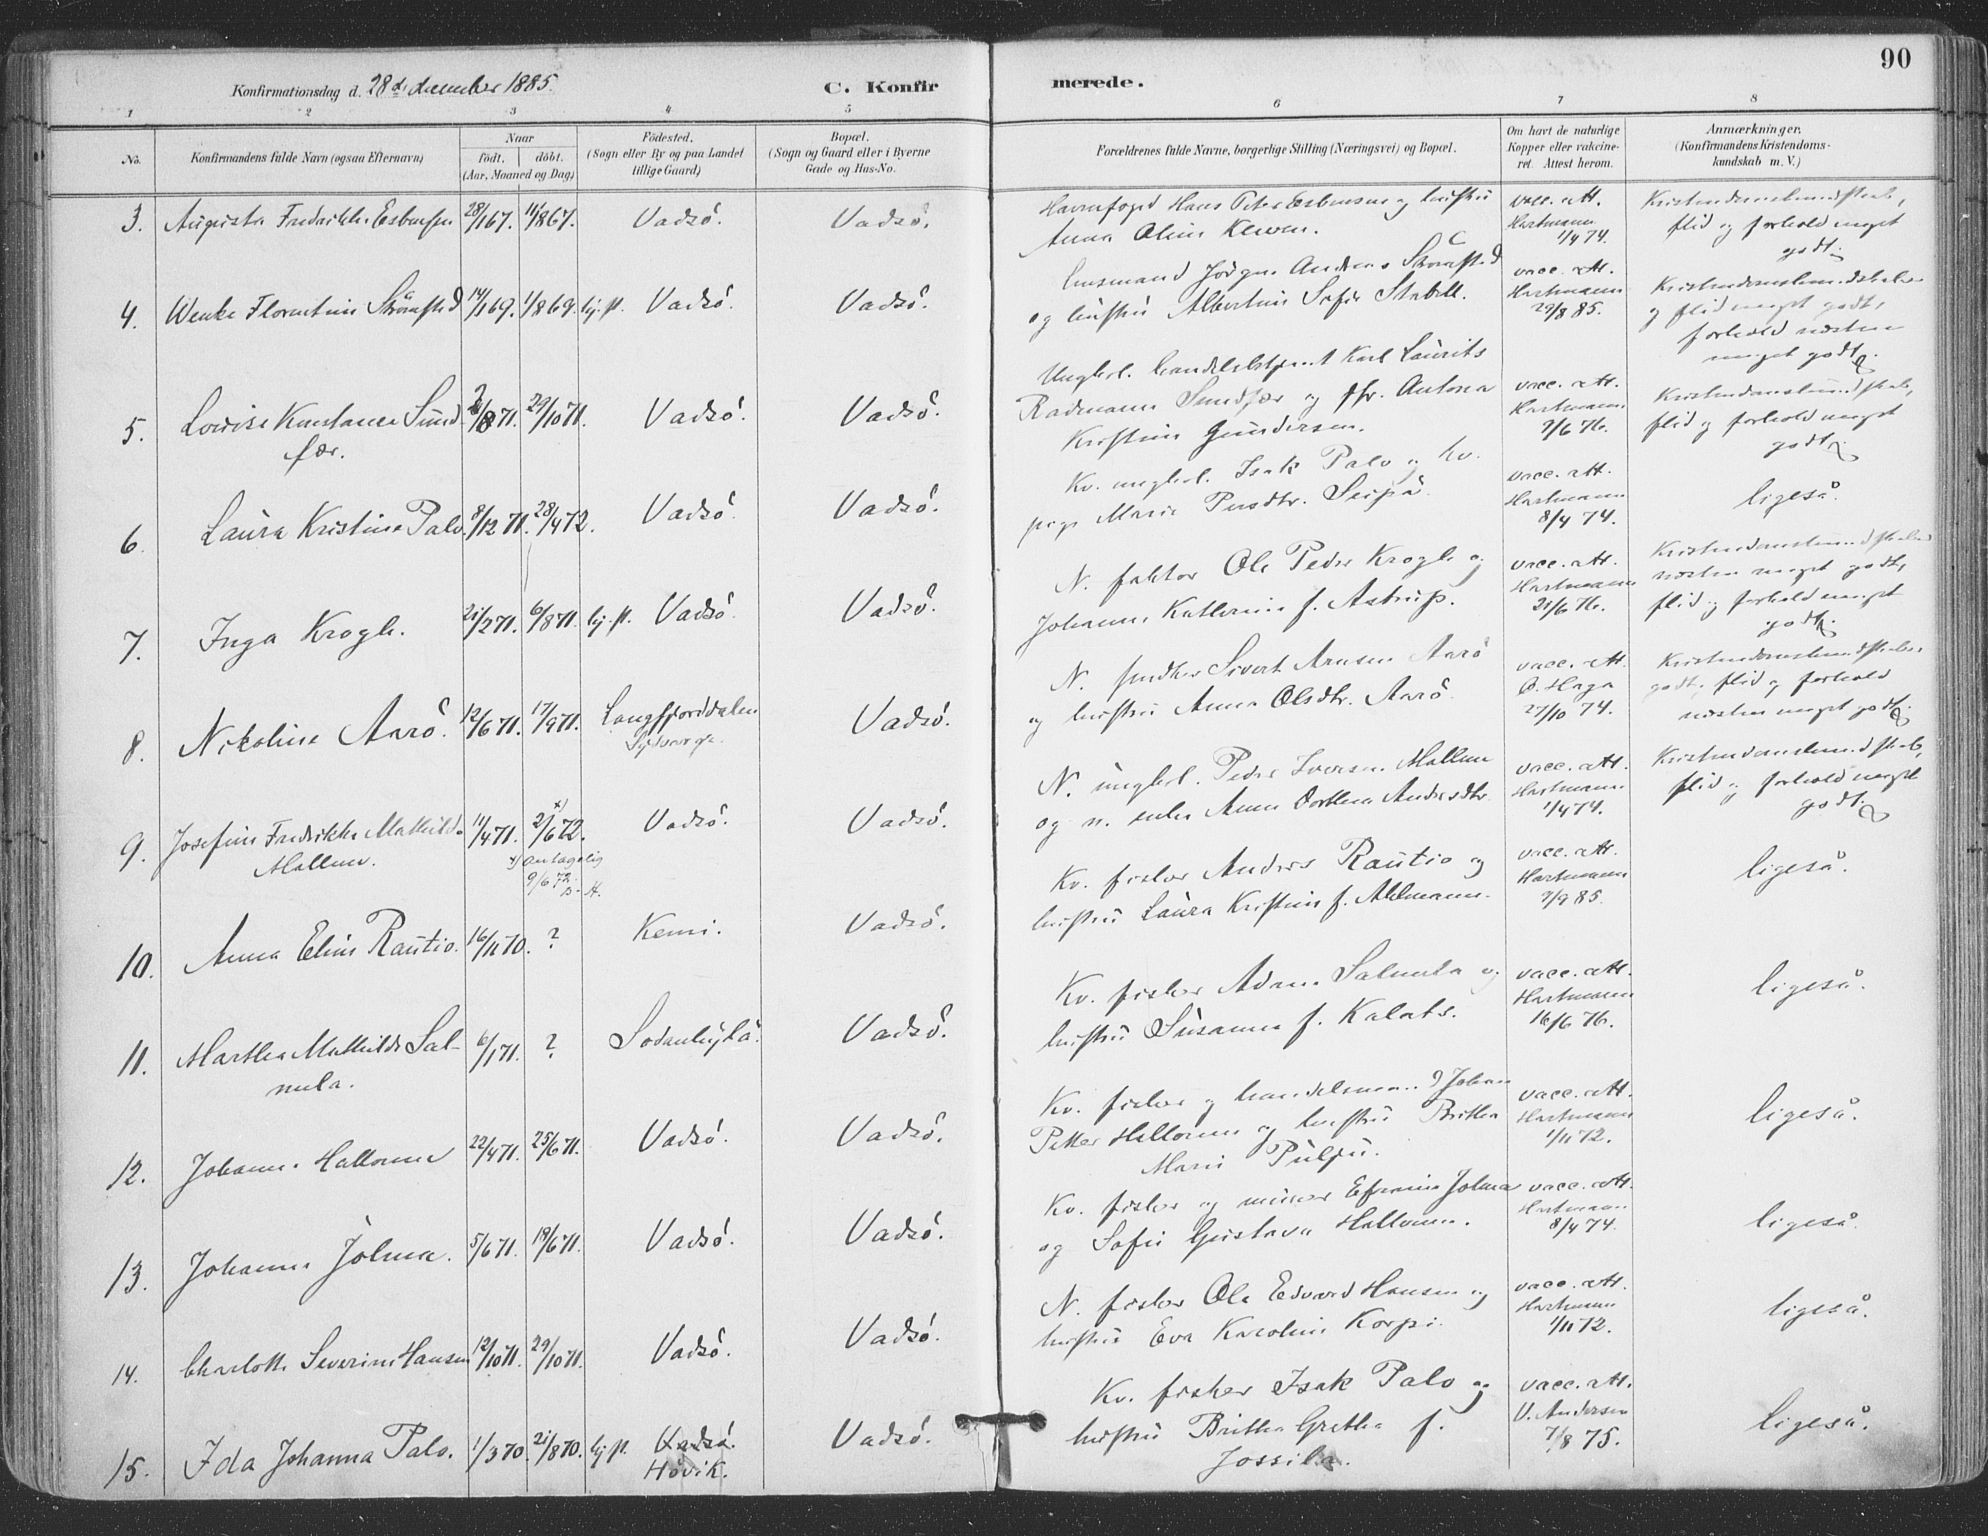 90
Konfirmationsdag d. 28d december 1885.
C. Konfirmerede.
1 2 3 4 5 6 7 8
No.
Konfirmandens fulde Navn (ogsaa Efternavn)
Naar
födt. döbt.
(Aar, Maaned og Dag)
Födested.
(Sogn eller By og paa Landet
tillige Gaard)
Bopæl.
(Sogn og Gaard eller i Byerne
Gade og Hus-No.
Forældrenes fulde Navne, borgerlige Stilling (Næringsvei) og Bopæl.
Om havt de naturlige
Kopper eller vakcine-
ret. Attest herom.
Anmærkninger.
(Konfirmandens Kristendoms-
kundskab m. V.)
3. Augusta Fredrikke Esbensen 28/1 67. 11/8 67. Vadsö. Vadsö.
Havnefoged Hans Peter Esbensen og hustru
Anna Oline Klerven.
vacc. att.
Hartmann
1/4 74.
Kristendomskundskab,
flid og forhold meget
godt.
4. Wenke Florentine Strömsted 14/1 69. 1/8 69. hj. d. Vadsö. Vadsö.
Husmand Jörgen Andreas Strömsted
og hustru Albertine Sofie Stabell.
vacc. att.
Hartmann
29/8 85.
Kristendomskundskaber
og flid meget godt,
forhold næsten
meget godt.
5. Lovise Konstance Sund-
fær. 2/8 71. 29/10 71. Vadsö. Vadsö.
Ungkarl. handelsbetjent Karl Laurits
Radmann Sundfær og Antona
Kristine Gundersen.
vacc. att.
Hartmann
7/6 76.
Kristendomskundskab,
flid og forhold meget
godt.
6. Laura Kristine Palo. 8/12 71. 28/4 72. Vadsö. Vadsö.
Kv. ungkarl. Isak Palo og kv.
pige Maria Persdtr. Seipä.
vacc. att.
Hartmann
8/4 74.
ligeså.
7. Inga Krogh. 21/2 71. 6/8 71. hj. d. Vadsö. Vadsö.
N. faktor Ole Peder Krogh og
Johanne Katherine f. Astrup.
vacc. att.
Hartmann
21/6 76.
Kristendomskundskaber
næsten meget godt,
flid og forhold meget
godt.
8. Nikoline Aarö. 12/6 71. 17/9 71. Langfjorddalen
Sydvaranger. Vadsö.
N. snedker Sivert Arnesen Aarö
og hustru Anna Olsdtr. Aarö.
vacc. att.
O. Haga
27/10 74.
Kristendomskundskaber
godt, flid og forhold
næsten meget godt.
9. Josefine Fredrikke Mathilde
Mallum. 11/4 71. 2/6 72. x) Vadsö. Vadsö.
x) antagelig
9/6 72.
N. ungkarl. Peder Iversen Mallum
og n. enke Anna Dorthea Andersdtr.
vacc. att.
Hartmann
1/4 74.
Kristendomskundskab,
flid og forhold meget
godt.
10. Anna Eline Rautio. 16/11 70. ? Kemi. Vadsö.
Kv. fisker Anders Rautio og
hustru Laura Kristine f. Ahlmann.
vacc. att.
Hartmann
7/9 85.
ligeså.
11. Martha Mathilde Sal-
mela. 6/1 71. ? Sodankylä. Vadsö.
Kv. fisker Adam Salmela og
hustru Susanna f. Kalats.
vacc. att.
Hartmann
16/6 76.
ligeså.
12. Johanne Hallonen 22/4 71. 25/6 71. Vadsö. Vadsö.
Kv. fisker og handelsmand Johan
Petter Hallonen og hustru Britha
Maria Pulju.
vacc. att.
Hartmann
1/11 72.
ligeså.
13. Johanne Jolma. 5/6 71. 18/6 71. Vadsö. Vadsö.
Kv. fisker og murer Efraim Jolma
og Sofie Gustava Hallonen.
vacc. att.
Hartmann
8/4 74.
ligeså.
14. Charlotte Severine Hansen 12/10 71. 29/10 71. Vadsö. Vadsö.
N. fisker Ole Edvard Hansen og
hustru Eva Karoline Korpi.
vacc. att.
Hartmann
1/11 72.
ligeså.
15. Ida Johanna Palo. 1/3 70. 21/8 70. hj. d. Vadsö.
Høvik. Vadsö.
Kv. fisker Isak Palo og
hustru Britha Gretha f.
Jossila.
vacc. att.
U. Andersen
7/8 75.
ligeså.